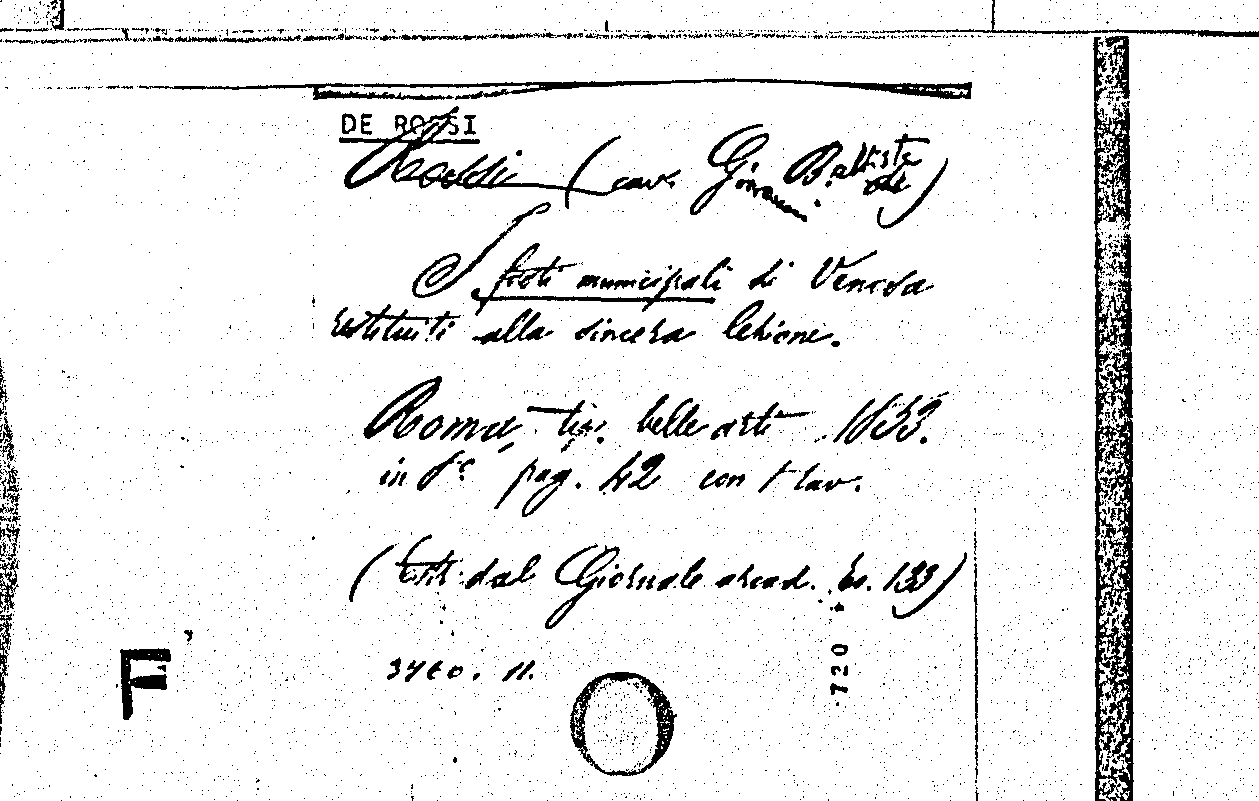 DE ROSSI
Rossi (cav. Giovanni Battista de)
I fasti municipali di Venosa
restituiti alla sincera lezione.
Roma, tip. belle arti 1853.
in 8º pag. 42 con 1 tav.
(Estr. dal Giornale arcad. to. 133)
F
720